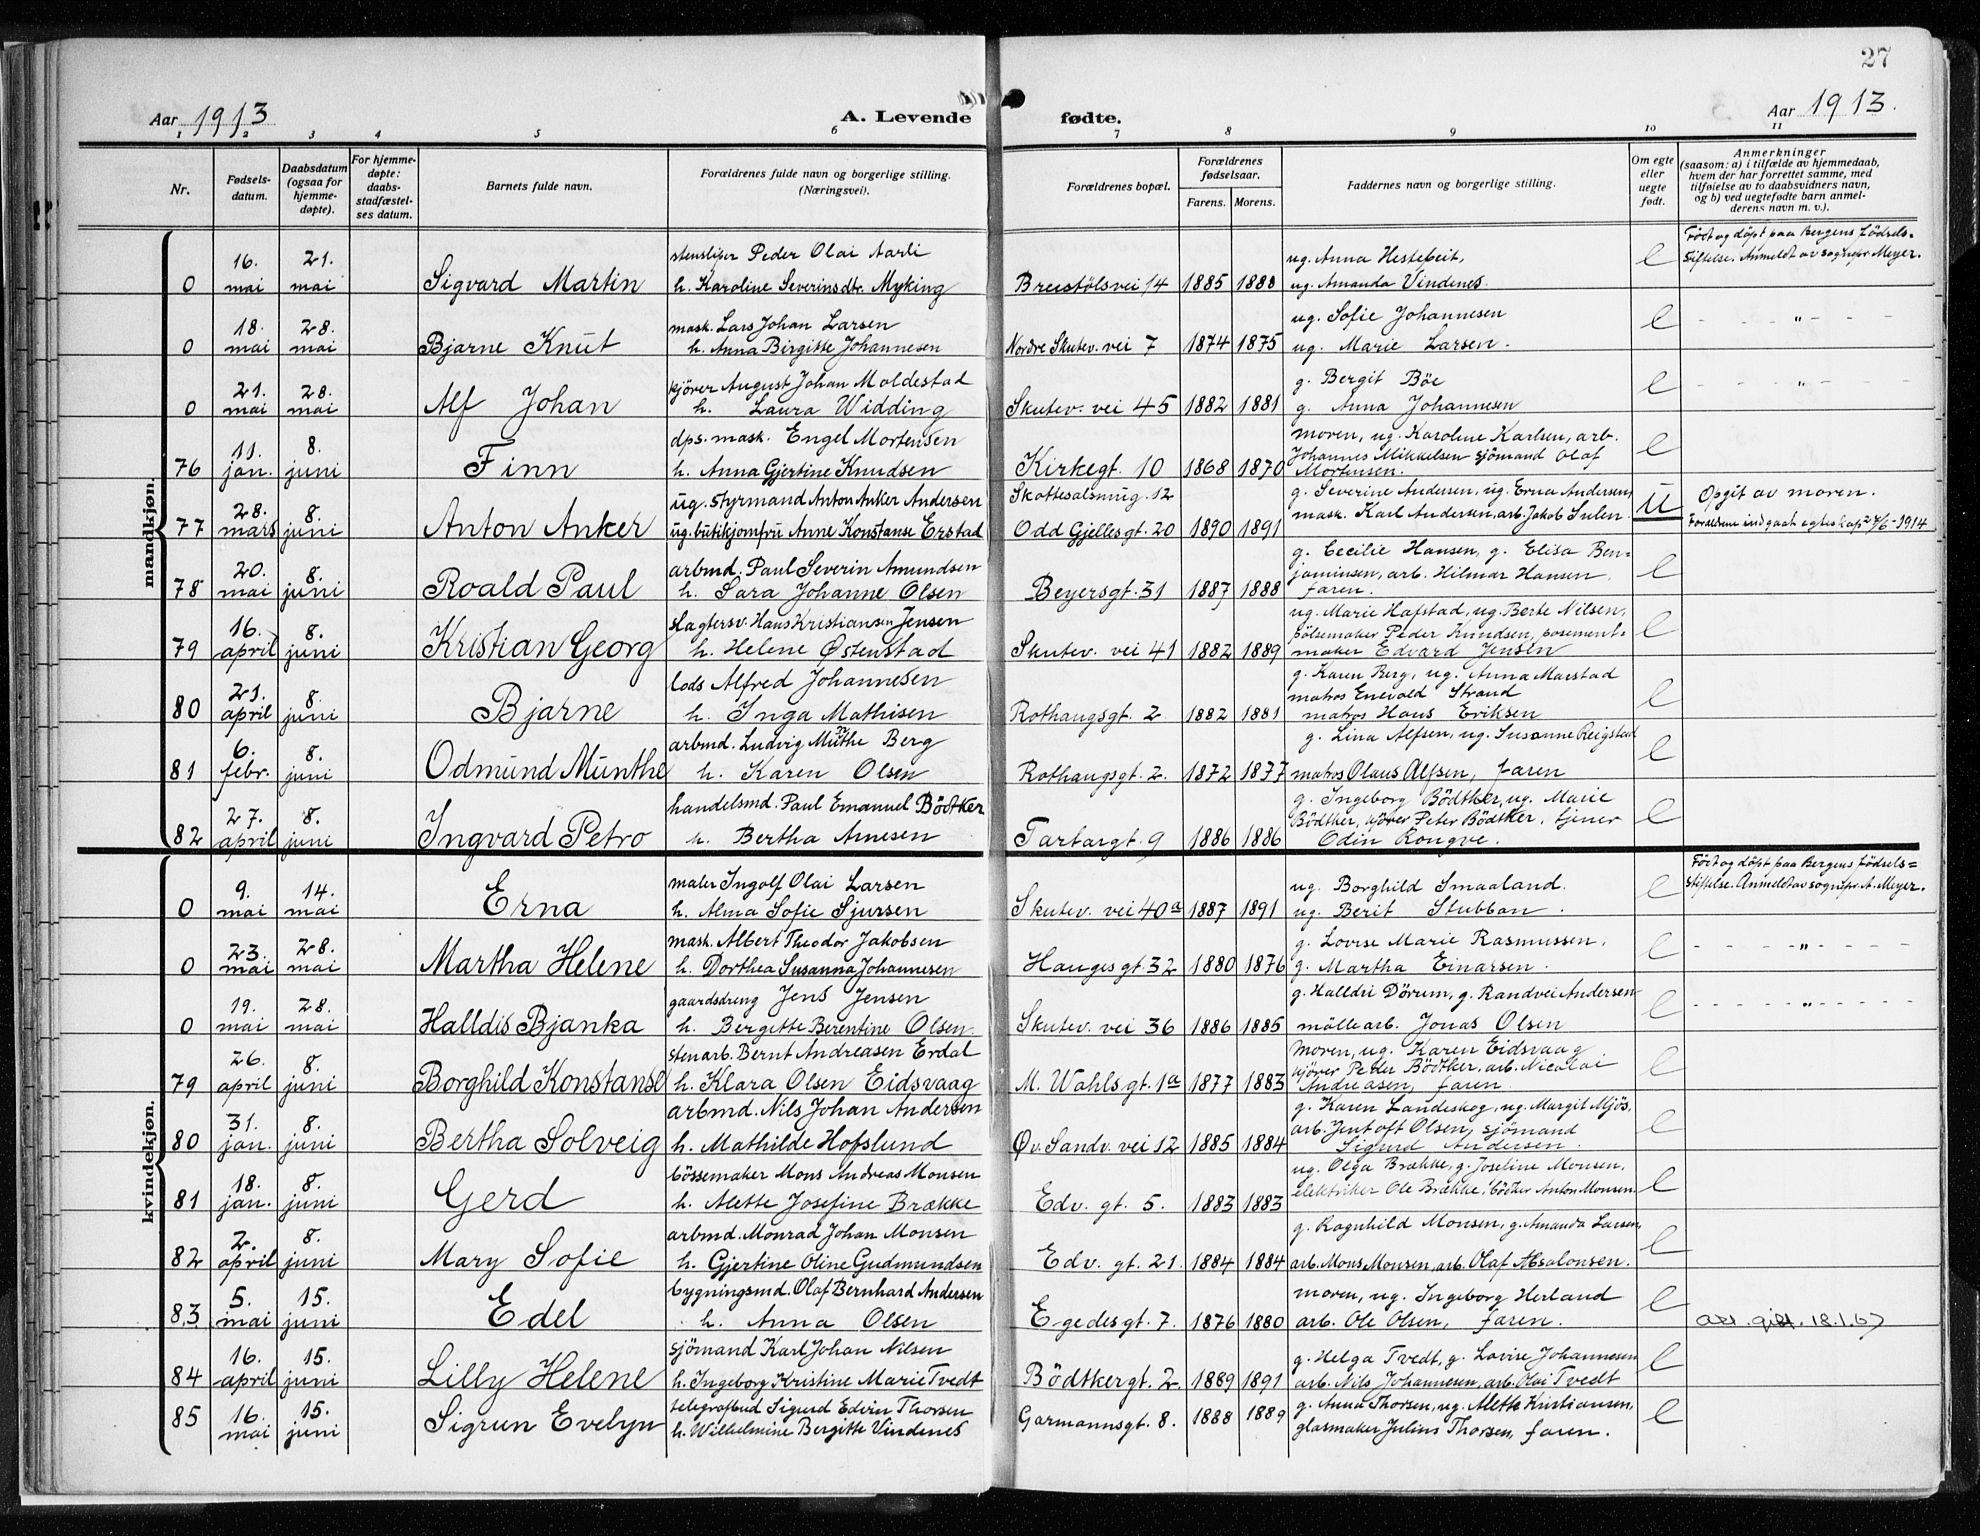 27
Aar 1913
A. Levende fødte.
Aar 1913.
1 2 3 4 5 6 7 8 9 10 11
Nr.
Fødsels-
datum.
Daabsdatum
(ogsaa for
hjemme-
døpte).
For hjemme-
døpte:
daabs-
stadfæstel-
ses datum.
Barnets fulde navn.
Forældrenes fulde navn og borgerlige stilling.
(Næringsvei).
Forældrenes bopæl.
Forældrenes
fødselsaar.
Farens. Morens.
Faddernes navn og borgerlige stilling.
Om egte
eller
uegte
født.
Anmerkninger
(saasom: a) i tilfælde av hjemmedaab,
hvem der har forrettet samme, med
tilføielse av to daabsvidners navn,
og b) ved uegtefødte barn anmel-
derens navn m. v.).
mandkjøn.
0 16. mai 21. mai Sigvard Martin
stensliper Peder Olai Aarli
h. Karoline Severinsdtr. Myking
Breistölsvei 14 1885 1888
ug. Anna Hestebeit,
ug. Amanda Vindenes.
e
Født og döpt paa Bergens födsels-
stiftelse. Anmeldt av sognepr. Meyer.
0 18. mai 28. mai Bjarne Knut
mask. Lars Johan Larsen
h. Anna Birgitte Johannesen
Nordre Skutev. vei 7 1874 1875
ug. Sofie Johannesen
ug. Marie Larsen.
e - - - " - - -
0 21. mai 28. mai Alf Johan
kjörer August Johan Moldestad
h. Laura Widding
Skutev. vei 45 1882 1881
g. Bergit Böe
g. Anna Johannesen
e - - - " - - -
76 11. jan. 8. juni Finn
dps. mask. Engel Mortensen
h. Anna Gjertine Knudsen
Kirkegt. 10 1868 1870
moren, ug. Karoline Karlsen, arb.
Johannes Mikkelsen sjömand Olaf
Mortensen.
e
77 28. mars 8. juni Anton Anker
ug. styrmand Anton Anker Andersen
ug. butikjomfru Anne Konstanse Erstad
Skottesalsmug. 12
Odd Gjellesgt. 20 1890 1891
g. Severine Andersen, ug. Erna Andersen,
mask. Karl Andersen, arb. Jakob Sulen
U
Opgit av moren.
Forældrene indgaat egteskap 27/6-1914
78 20. mai 8. juni Roald Paul
arbmd. Paul Severin Amundsen
h. Sara Johanne Olsen
Beyersgt. 31 1887 1888
g. Cecilie Hansen, g. Elisa Ben-
jaminsen, arb. Hilmar Hansen,
faren.
e
79 16. april 8. juni Kristian Georg
slagtersv. Hans Kristiansen Jensen
h. Helene Østenstad
Skutev. vei 41 1882 1889
ug. Marie Hafstad, ug. Berte Nilsen,
pölsemaker Peder Knudsen, posement-
maker Edvard Jensen
e
80 21. april 8. juni Bjarne
lods Alfred Johannesen
h. Inga Mathisen
Rothaugsgt. 2 1882 1881
g. Karen Berg, ug. Anna Marstad
matros Enevald Strand
matros Hans Eriksen
e
81 6. febr. 8. juni Odmund Munthe
arbmd. Ludvig Munthe Berg
h. Karen Olsen
Rothaugsgt. 2. 1872 1877
g. Lina Alfsen, ug. Susanne Reigstad
matros Olaus Alfsen, faren
e
82 27. april 8. juni Ingvard Petro
handelsmd. Paul Emanuel Bödtker
h. Bertha Arnesen
Tartargt. 9 1886 1886
g. Ingeborg Bödtker, ug. Marie
Bödtker, kjörer Peter Bödtker, tjener
Odin Rongve.
e
kvindekjøn.
0 9. mai 14. mai Erna
maler Ingolf Olai Larsen
h. Alma Sofie Sjursen
Skutev. vei 40a 1887 1891
ug. Borghild Smaaland.
ug. Berit Stubban.
e
Født og döpt paa Bergens födsels=
stiftelse. Anmeldt av sognepr. A. Meyer.
0 23. mai 28. mai Martha Helene
mask. Albert Theodor Jakobsen
h. Dorthea Susanna Johannesen
Haugesgt. 32 1880 1876
g. Lovise Marie Rasmussen.
g. Martha Einarsen.
e - - - " - - -
0 19. mai 28. mai Halldis Bjanka
gaardsdreng Jens Jensen
h. Bergitte Berentine Olsen.
Skutev. vei 36 1886 1885
g. Halldri Dörum, g. Randvei Andersen
möllearb. Jonas Olsen
e - - - " - - -
79 26. april 8. juni Borghild Konstanse
stenarb. Bernt Andreasen Erdal
h. Klara Olsen Eidsvaag
M. Wahls gt. 1a 1877 1883
moren, ug. Karen Eidsvaag
kjörer Peder Bödtker, arb. Nicolai
Andreasen, faren.
e
80 31. jan. 8. juni Bertha Solveig
arbmd. Nils Johan Andersen
h. Mathilde Hofslund
Øv. Sandv. vei 12 1885 1884
g. Karen Landeskog, ug. Margit Mjös,
arb. Jentoft Olsen, sjömand
Sigurd Andersen.
e
81 18. jan. 8. juni Gerd
bössemaker Mons Andreas Monsen
h. Alette Josefine Brække
Edv. gt. 5. 1883 1883
ug. Olga Brække, g. Joseline Monsen,
elektriker Ole Brække, bödker Anton Monsen
e
82 2. april 8. juni Mary Sofie
arbmd. Monrad Johan Monsen
h. Gjertine Oline Gudmundsen
Edv. gt. 21. 1884 1884
g. Ragnhild Monsen, g. Amanda Larsen,
arb. Mons Monsen, arb. Olaf Absalonsen.
e
83 5. mai 15. juni Edel
bygningsmd. Olaf Bernhard Andersen
h. Anna Olsen
Egedesgt. 7. 1876 1880
moren, ug. Ingeborg Herland
arb. Ole Olsen, faren.
e
att. gift. 18.1.67
84 16. april 15. juni Lilly Helene
sjömand Karl Johan Nilsen
h. Ingeborg Kristine Marie Tvedt
Bödtkergt. 2. 1889 1891
g. Helga Tvedt, g. Lovise Johannesen
arb. Nils Johannesen, arb. Olai Tvedt
e
85 16. mai 15. juni Sigrun Evelyn
telegrafbud Sigurd Edvin Thorsen
h. Wilhelmine Bergitte Vindenes
Garmannsgt. 8. 1888 1889
g. Anna Thorsen, ug. Alette Kristiansen,
glasmaker Julius Thorsen, faren.
e